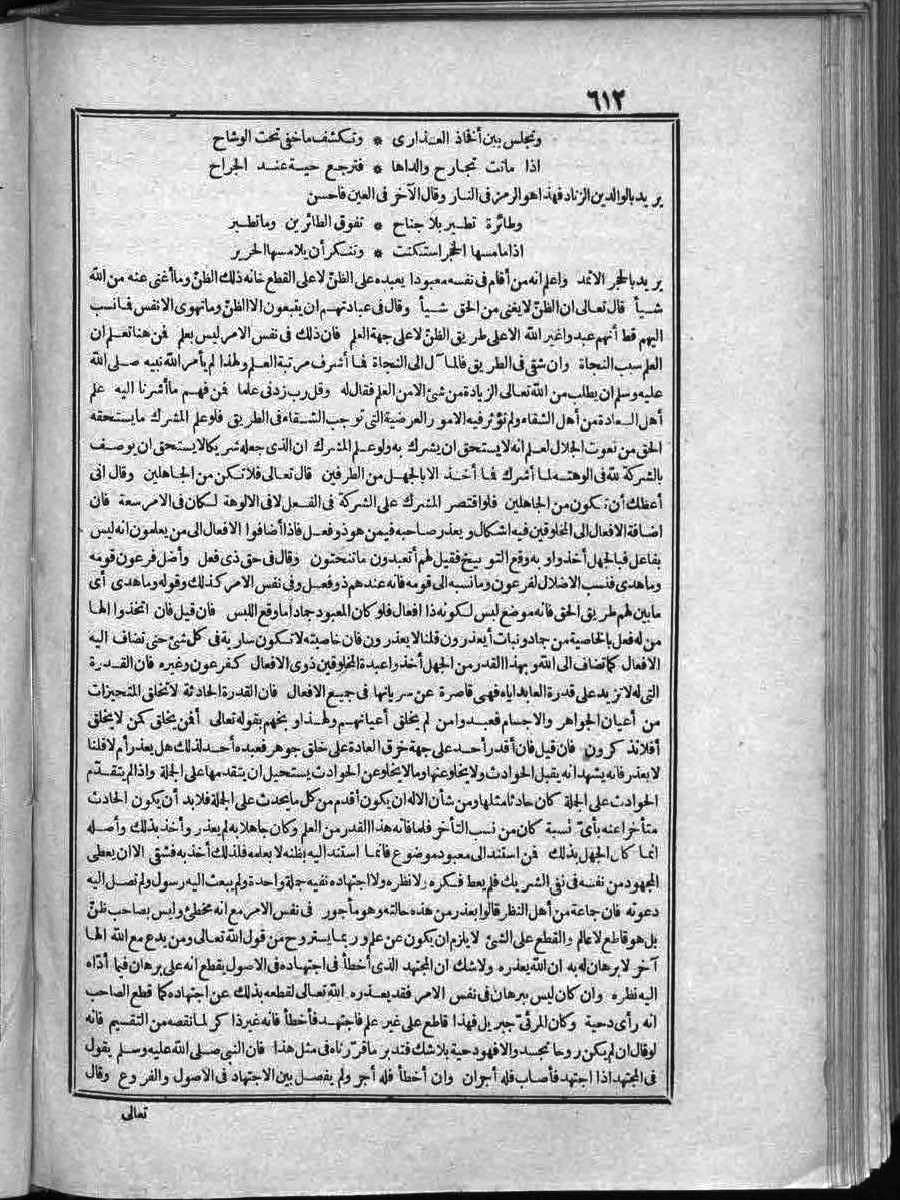 ٦١٢
وتجلس بين أفخاذ العذارى * وتكشف ما خفى تحت الوشاح
اذا ماتت تجارح والداها * فترجع حية عند الجراح
يريد بالوالدين الزناد فهذا هو الرمز فى النار وقال الآخر فى العين فاحسن
وطائرة تطير بلا جناح * تفوق الطائرين وما تطير
اذا ما مسها الحجر استكنت * وتنكر أن يلامسها الحرير
يريد بالحجر الاثمد واعلم انه من أقام فى نفسه معبودا يعبده على الظنّ لا على القطع خانه ذلك الظنّ وما أغنى عنه من الله
شيأ قال تعالى ان الظنّ لا يغنى من الحق شيأ وقال فى عبادتهم ان يتبعون الا الظنّ وما تهوى الانفس فما نسب
اليهم قط أنهم عبدوا غير الله الا على طريق الظنّ لا على جهة العلم فان ذلك فى نفس الامر ليس بعلم فمن هنا تعلم ان
العلم سبب النجاة وان شقى فى الطريق فالمآل الى النجاة فما أشرف مرتبة العلم ولهذا لم يأمر الله نبيه صلى الله
عليه وسلم ان يطلب من الله تعالى الزيادة من شئ الا من العلم فقال له وقل رب زدنى علما فمن فهم ما أشرنا اليه علم
أهل السعادة من أهل الشقاء ولم تؤثر فيه الامور العرضية التى توجب الشقاء فى الطريق فلو علم المشرك ما يستحقه
الحق من نعوت الجلال لعلم انه لا يستحق ان يشرك به ولو علم المشرك ان الذى جعله شريكا لا يستحق ان يوصف
بالشركة لله فى الوهته لما أشرك فما أخذ الا بالجهل من الطرفين قال تعالى فلا تكن من الجاهلين وقال انى
أعظك أن تكون من الجاهلين فلو اقتصر المشرك على الشركة فى الفعل لا فى الالوهة لكان فى الامر سعة فان
اضافة الافعال الى المخلوقين فيه اشكال ويعذر صاحبه فيمن هو ذو فعل فاذا أضافوا الافعال الى من يعلمون انه ليس
بفاعل فبالجهل أخذوا وبه وقع التوبيخ فقيل لهم أتعبدون ما تنحتون وقال فى حق ذى فعل وأضل فرعون قومه
وما هدى فنسب الاضلال لفرعون وما نسبه الى قومه فانه عندهم ذو فعل وفى نفس الامر كذلك وقوله وما هدى أى
ما بين لهم طريق الحق فانه موضع لبس لكونه ذا افعال فلو كان المعبود جمادا ما وقع اللبس فان قيل فان اتخذوا الها
من له فعل بالخاصية من جماد ونبات أيعذرون قلنا لا يعذرون فان خاصيته لا تكون سارية فى كل شئ حتى تضاف اليه
الافعال كما تضاف الى الله وبهذا القدر من الجهل أخذوا عبدة المخلوقين ذوى الافعال كفرعون وغيره فان القدرة
التى له لا تزيد على قدرة العابد اياه فهى قاصرة عن سريانها فى جميع الافعال فان القدرة الحادثة لا تخلق المتحيزات
من أعيان الجواهر والاجسام فعبدوا من لم يخلق أعيانهم ولهذا وبخهم بقوله تعالى أفمن يخلق كمن لا يخلق
أفلا تذكرون فان قيل فان أقدر أحد على جهة خرق العادة على خلق جوهر فعبده أحد لذلك هل يعذر أم لا قلنا
لا يعذر فانه يشهد انه يقبل الحوادث ولا يخلو عنها وما لا يخلو عن الحوادث يستحيل ان يتقدمها على الجملة واذا لم يتقدّم
الحوادث على الجملة كان حادثا مثلها ومن شأن الاله ان يكون أقدم من كل ما يحدث على الجملة فلا بد أن يكون الحادث
متأخرا عنه بأىّ نسبة كان من نسب التأخر فلما فاته هذا القدر من العلم وكان جاهلا به لم يعذر وأخذ بذلك وأصله
انما كان الجهل بذلك فمن استند الى معبود موضوع فانما استند اليه بظنه لا بعلمه فلذلك أخذ به فشقى الا ان يعطى
المجهود من نفسه فى نفى الشريك فلم يعط فكره ولا نظره ولا اجتهاده نفيه جملة واحدة ولم يبعث اليه رسول ولم تصل اليه
دعوته فان جماعة من أهل النظر قالوا بعذر من هذه حالته وهو مأجور فى نفس الامر مع انه مخطئ وليس بصاحب ظنّ
بل هو قاطع لا عالم والقطع على الشئ لا يلزم ان يكون عن علم وربما يستروح من قول الله تعالى ومن يدع مع الله الها
آخر لا برهان له به ان الله يعذره ولا شك ان المجتهد الذى أخطأ فى اجتهاده فى الاصول يقطع انه على برهان فيما أدّاه
اليه نظره وان كان ليس ببرهان فى نفس الامر فقد يعذره الله تعالى لقطعه بذلك عن اجتهاده كما قطع الصاحب
انه رأى دحية وكان المرئىّ جبريل فهذا قاطع على غير علم فاجتهد فأخطأ فانه غير ذاكر لما نقصه من التقسيم فانه
لو قال ان لم يكن روحا تجسد والا فهو دحية بلا شك فتدبر ما قررناه فى مثل هذا فان النبى صلى الله عليه وسلم يقول
فى المجتهد اذا اجتهد فأصاب فله أجران وان أخطأ فله أجر ولم يفصل بين الاجتهاد فى الاصول والفروع وقال
تعالى